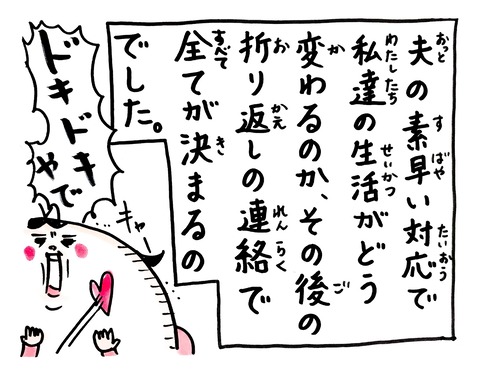 夫の素早い対応で
私達の生活がどう
変わるのか、その後の
折り返しの連絡で
全てが決まるの
でした。
ドキドキ
やで
キャー